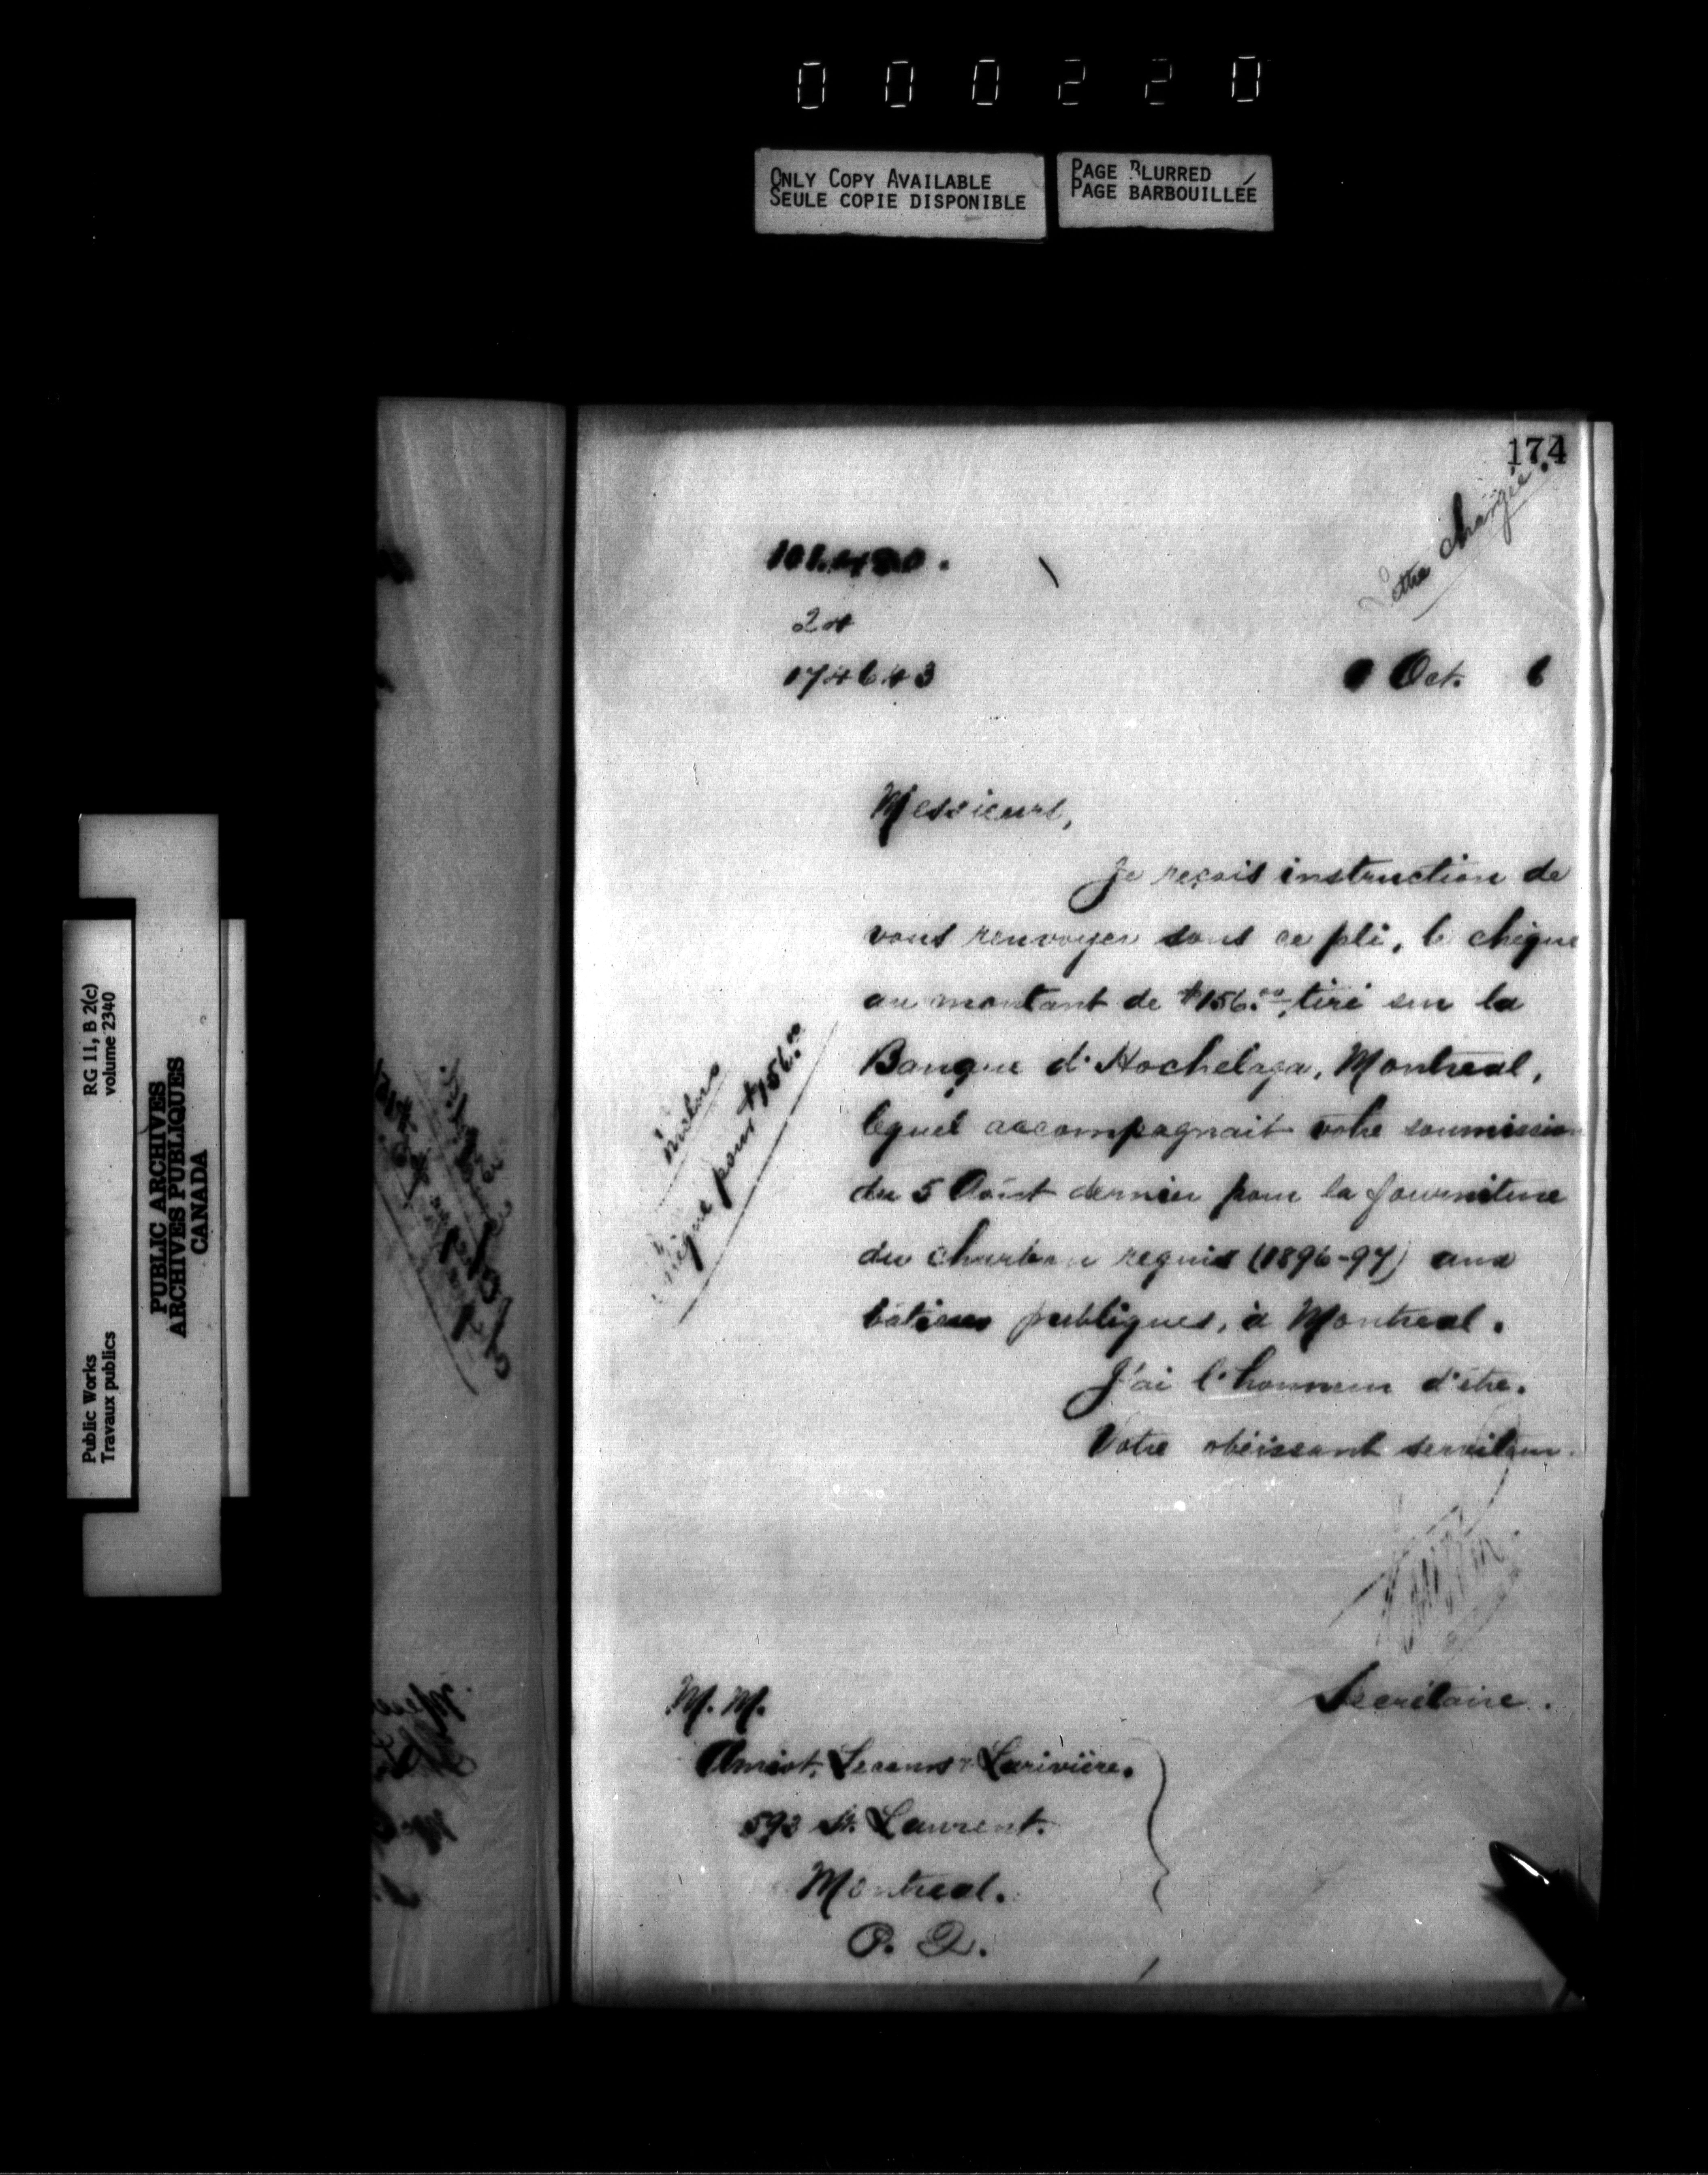 000220
ONLY COPY AVAILABLE
SEULE COPIE DISPONIBLE
PAGE BLURRED
PAGE BARBOUILLÉE
RG 11, B 2(c)
volume 2340
Public Works
Travaux publics
PUBLIC ARCHIVES
ARCHIVES PUBLIQUES
CANADA
174
Lettre chargée.
24
174643
Oct. 6
Messieurs,
Je reçois instruction de
vous renvoyer sous ce pli, le chèque
au montant de $156.00, tiré sur la
Banque d'Hochelaga, Montreal,
lequel accompagnait votre soumission
du 5 Août dernier pour la fourniture
du charbon requis (1896-97) aux
bâtisses publiques, à Montreal.
J'ai l'honneur d'être.
Votre obéissant serviteur.
Inclus
chèque pour $156.00
Secrétaire.
M. M.
Amiot, Lecours & Larivière.
593 St. Laurent.
Montreal.
P. Q.